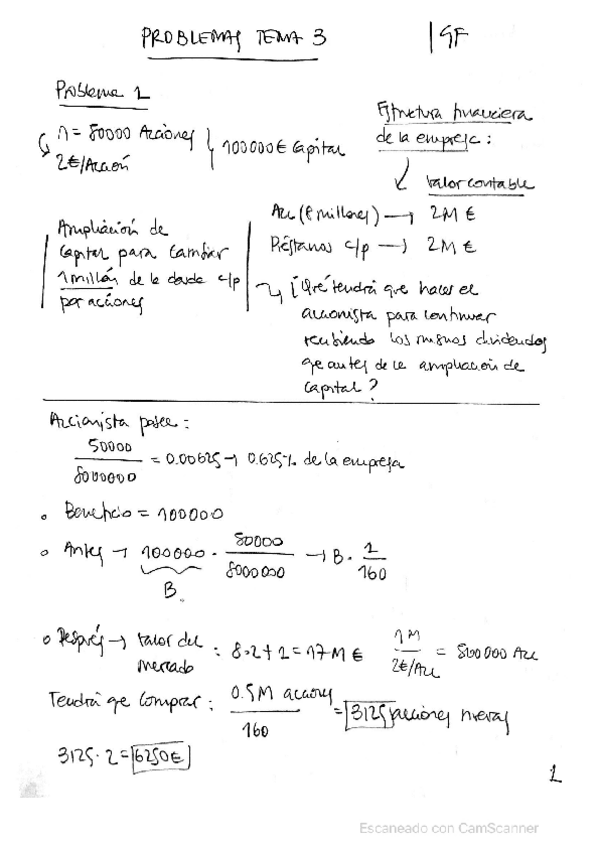 PROBLEMAS TEMA 3 | GF
Problema 1
n = 50000 Acciones
2€/Acción
100000€ Capital
Estructura financiera
de la empresa:
Valor contable
Acc (8 millones) → 2M €
Préstamos c/p → 2M €
Ampliación de
Capital para cambiar
1 millón de la deuda c/p
por acciones
¿Qué tendrá que hacer el
accionista para continuar
recibiendo los mismos dividendos
que antes de la ampliación de
Capital?
Accionista posee:
50000 / 8000000 = 0.00625 → 0.625% de la empresa
• Beneficio = 100000
• Antes → 100000 · 50000 / 8000000 → B · 1 / 160
B
• Después → Valor del
mercado : 8·2+1 = 17 M €
1M / 2€/Acc = 500000 Acc
Tendrá que comprar: 0.5M acciones / 160 = 3125 acciones nuevas
3125 · 2 = 6250€
1
Escaneado con CamScanner